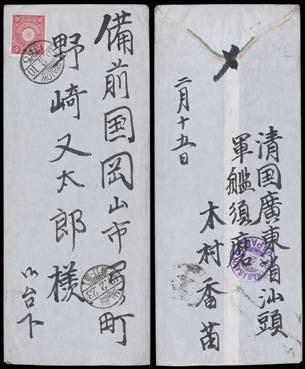 備前国岡山市
町
野崎又太郎様
清国廣東省汕頭
軍艦須磨
木村香苗
二月十五日